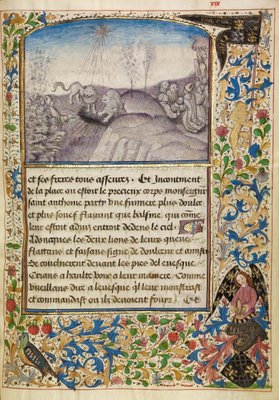 xix
et ses freres tous asseurez Et incontinent
de la place ou estoit le precieux corps monseigneur
saint anthoine party une fumiere plus doulce
et plus souef flairant que balsme qui comme
leur estoit advis entroit dedens le ciel
Adoncques les deux lions de leurs queues
flattans et faisans signe de douleur et
se coucherent devant les pies de levesque
Crians a haulte voix a leur maniere Comme
vueillans dire a levesque quil leur monstrast
et commandast ou ilz devoient fouyr